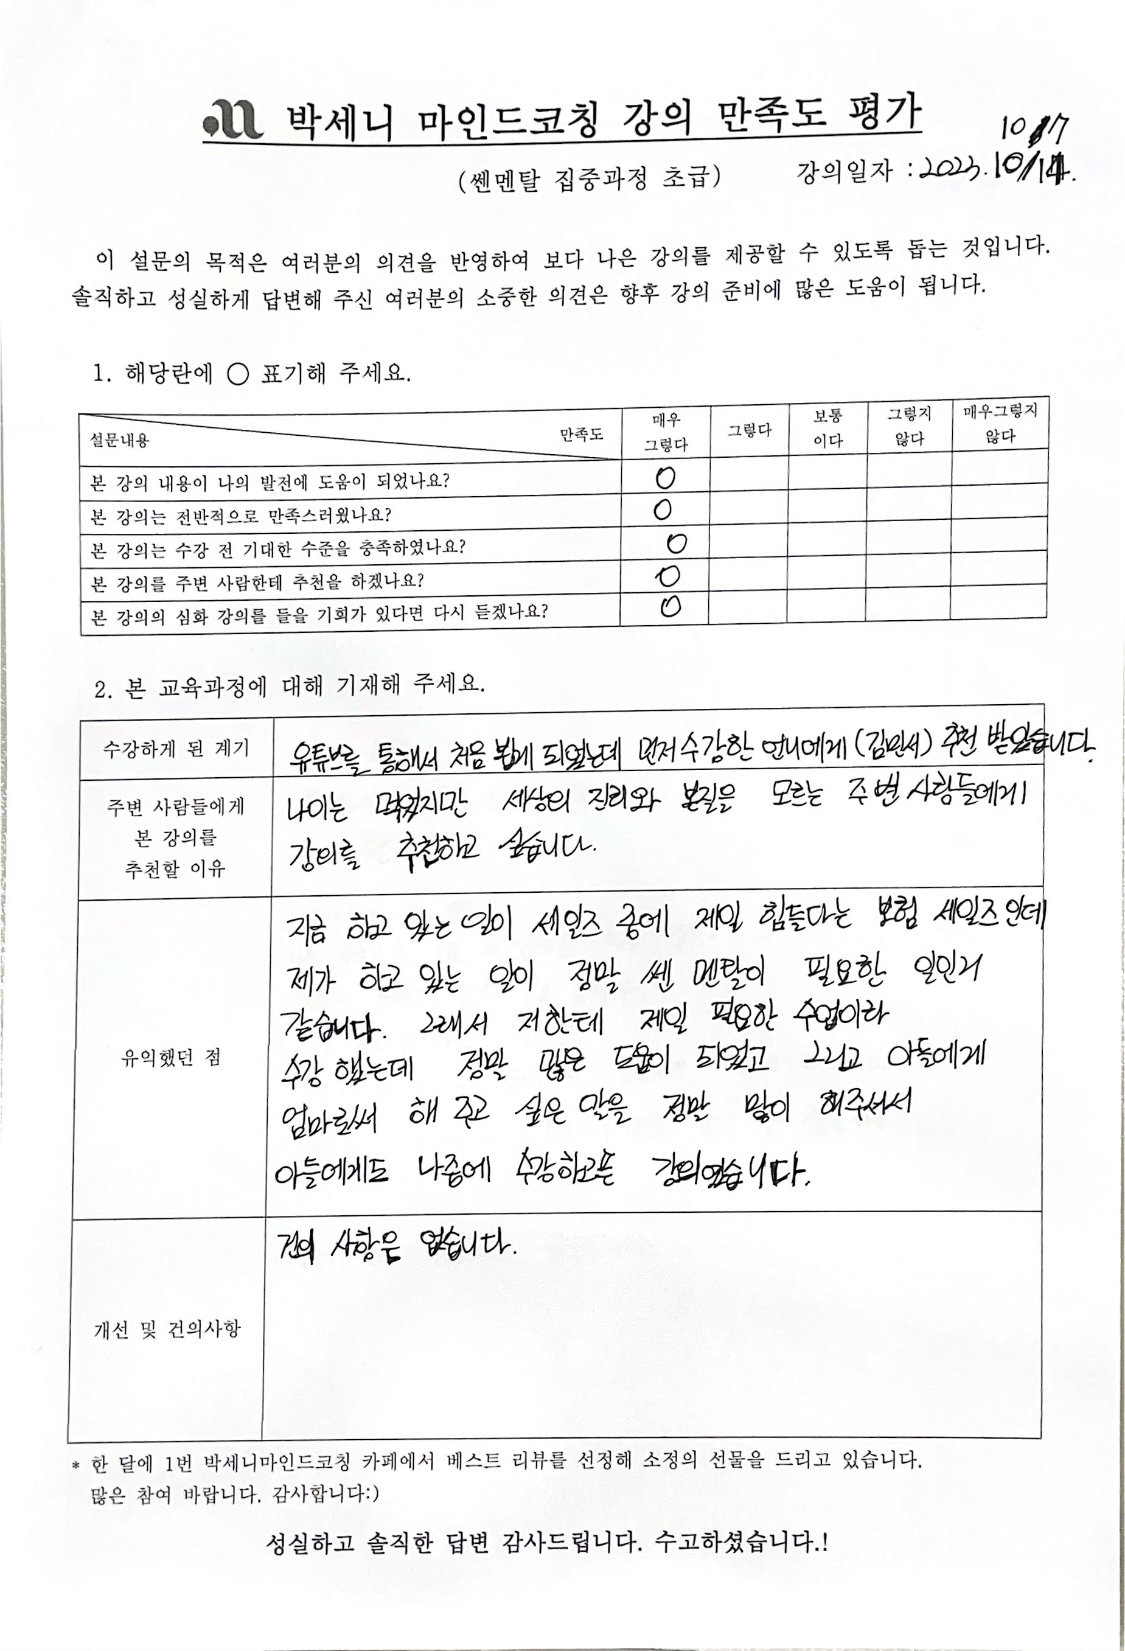 박세니 마인드코칭 강의 만족도 평가
(쎈멘탈 집중과정 초급)
강의일자 : 2023. 10/14.
10/17
이 설문의 목적은 여러분의 의견을 반영하여 보다 나은 강의를 제공할 수 있도록 돕는 것입니다.
솔직하고 성실하게 답변해 주신 여러분의 소중한 의견은 향후 강의 준비에 많은 도움이 됩니다.
1. 해당란에 ○ 표기해 주세요.
설문내용 만족도 매우 그렇다 그렇다 보통 이다 그렇지 않다 매우그렇지 않다
본 강의 내용이 나의 발전에 도움이 되었나요? O
본 강의는 전반적으로 만족스러웠나요? O
본 강의는 수강 전 기대한 수준을 충족하였나요? O
본 강의를 주변 사람한테 추천을 하겠나요? O
본 강의의 심화 강의를 들을 기회가 있다면 다시 듣겠나요? O
2. 본 교육과정에 대해 기재해 주세요.
수강하게 된 계기
유튜브를 통해서 처음 뵙게 되었는데 먼저 수강한 언니에게 (김민서) 추천 받았습니다.
주변 사람들에게
본 강의를
추천할 이유
나이는 먹었지만 세상의 진리와 본질을 모르는 주변 사람들에게
강의를 추천하고 싶습니다.
유익했던 점
지금 하고 있는 일이 세일즈 중에 제일 힘들다는 보험 세일즈인데
제가 하고 있는 일이 정말 쎈 멘탈이 필요한 일인거
같습니다. 그래서 저한테 제일 필요한 수업이라
수강 했는데 정말 많은 도움이 되었고 그리고 아들에게
엄마로써 해 주고 싶은 말을 정말 많이 해주셔서
아들에게도 나중에 수강하고픈 강의였습니다.
개선 및 건의사항
건의 사항은 없습니다.
* 한 달에 1번 박세니마인드코칭 카페에서 베스트 리뷰를 선정해 소정의 선물을 드리고 있습니다.
많은 참여 바랍니다. 감사합니다:)
성실하고 솔직한 답변 감사드립니다. 수고하셨습니다.!